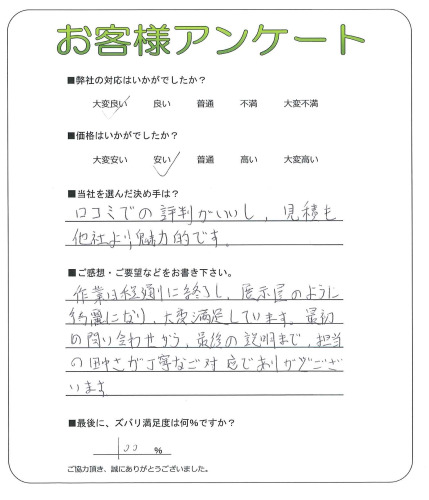 お客様アンケート
■弊社の対応はいかがでしたか？
大変良い 良い 普通 不満 大変不満
■価格はいかがでしたか？
大変安い 安い 普通 高い 大変高い
■当社を選んだ決め手は？
口コミでの評判がいいし、見積も
他社より魅力的です。
■ご感想・ご要望などをお書き下さい。
作業は順調に終了し、展示屋のように
綺麗になり、大変満足しています。最初
の問い合わせから、最後の説明まで、担当
の田中さが丁寧なご対応でありがどござ
います
■最後に、ズバリ満足度は何％ですか？
100 ％
ご協力頂き、誠にありがとうございました。